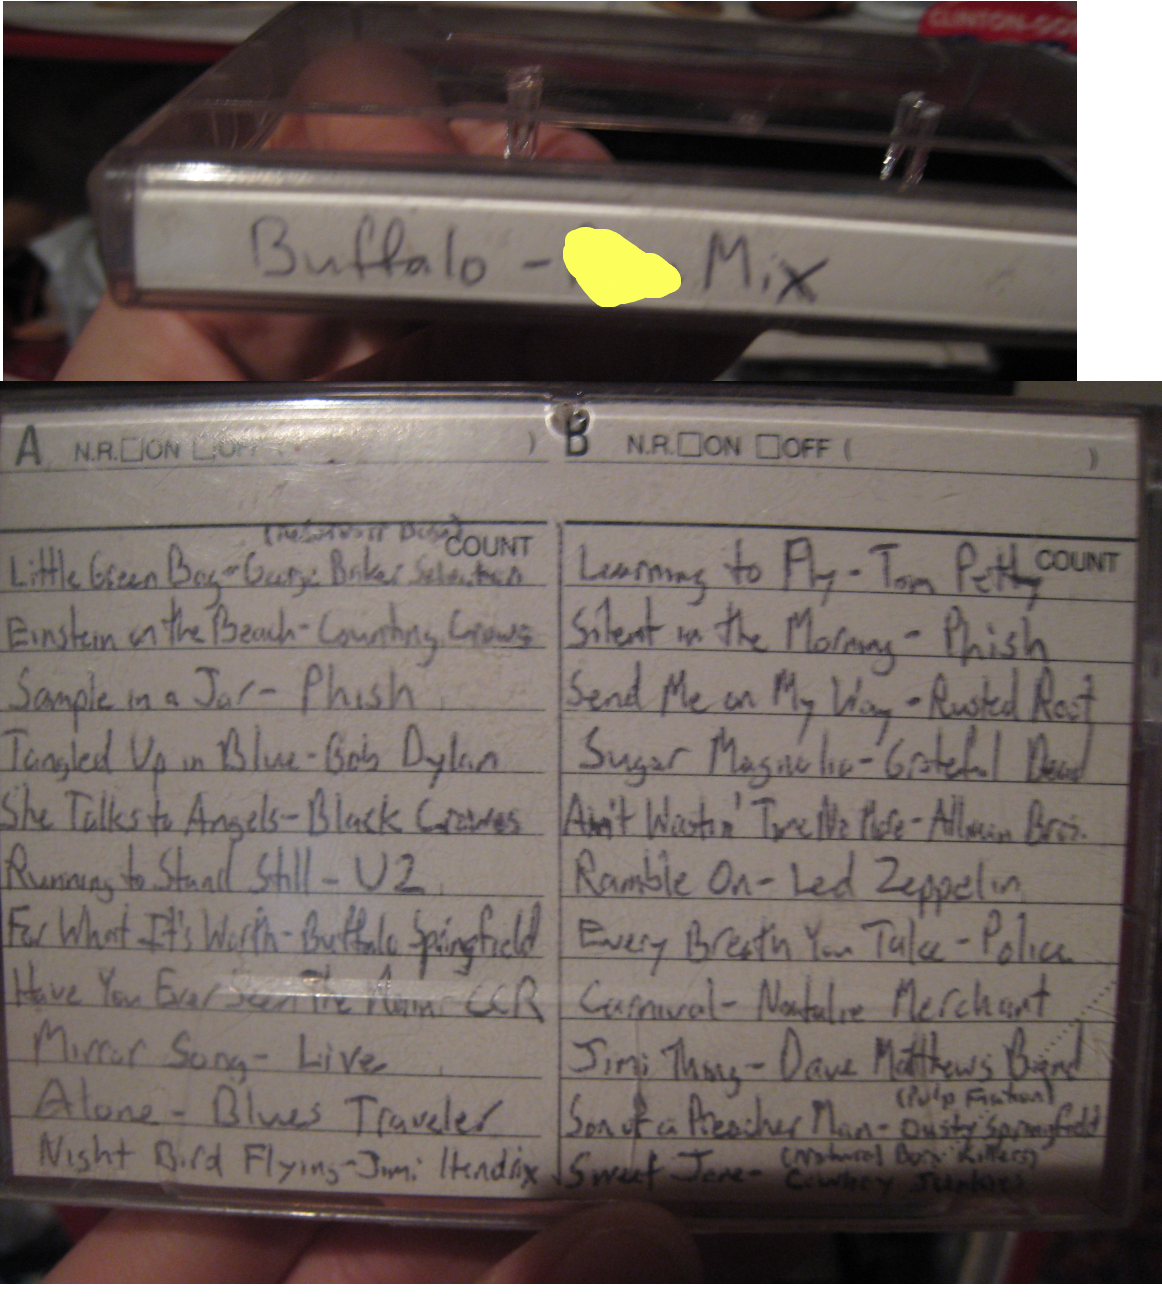 CLINTON-GO
Buffalo - Mix
A N.R. ON OFF ( )
(Reservoir Dogs)
COUNT
Little Green Bag - George Baker Selection
Einstein on the Beach - Counting Crows
Sample in a Jar - Phish
Tangled Up in Blue - Bob Dylan
She Talks to Angels - Black Crowes
Running to Stand Still - U2
For What It's Worth - Buffalo Springfield
Have You Ever Seen The Rain - CCR
Mirror Song - Live
Alone - Blues Traveler
Night Bird Flying - Jimi Hendrix
B N.R. ON OFF ( )
COUNT
Learning to Fly - Tom Petty
Silent in the Morning - Phish
Send Me on My Way - Rusted Root
Sugar Magnolia - Grateful Dead
Ain't Wastin' Time No More - Allman Bros.
Ramble On - Led Zeppelin
Every Breath You Take - Police
Carnival - Natalie Merchant
Jimi Thing - Dave Matthews Band
(Pulp Fiction)
Son of a Preacher Man - Dusty Springfield
(Natural Born Killers)
Sweet Jane - Cowboy Junkies